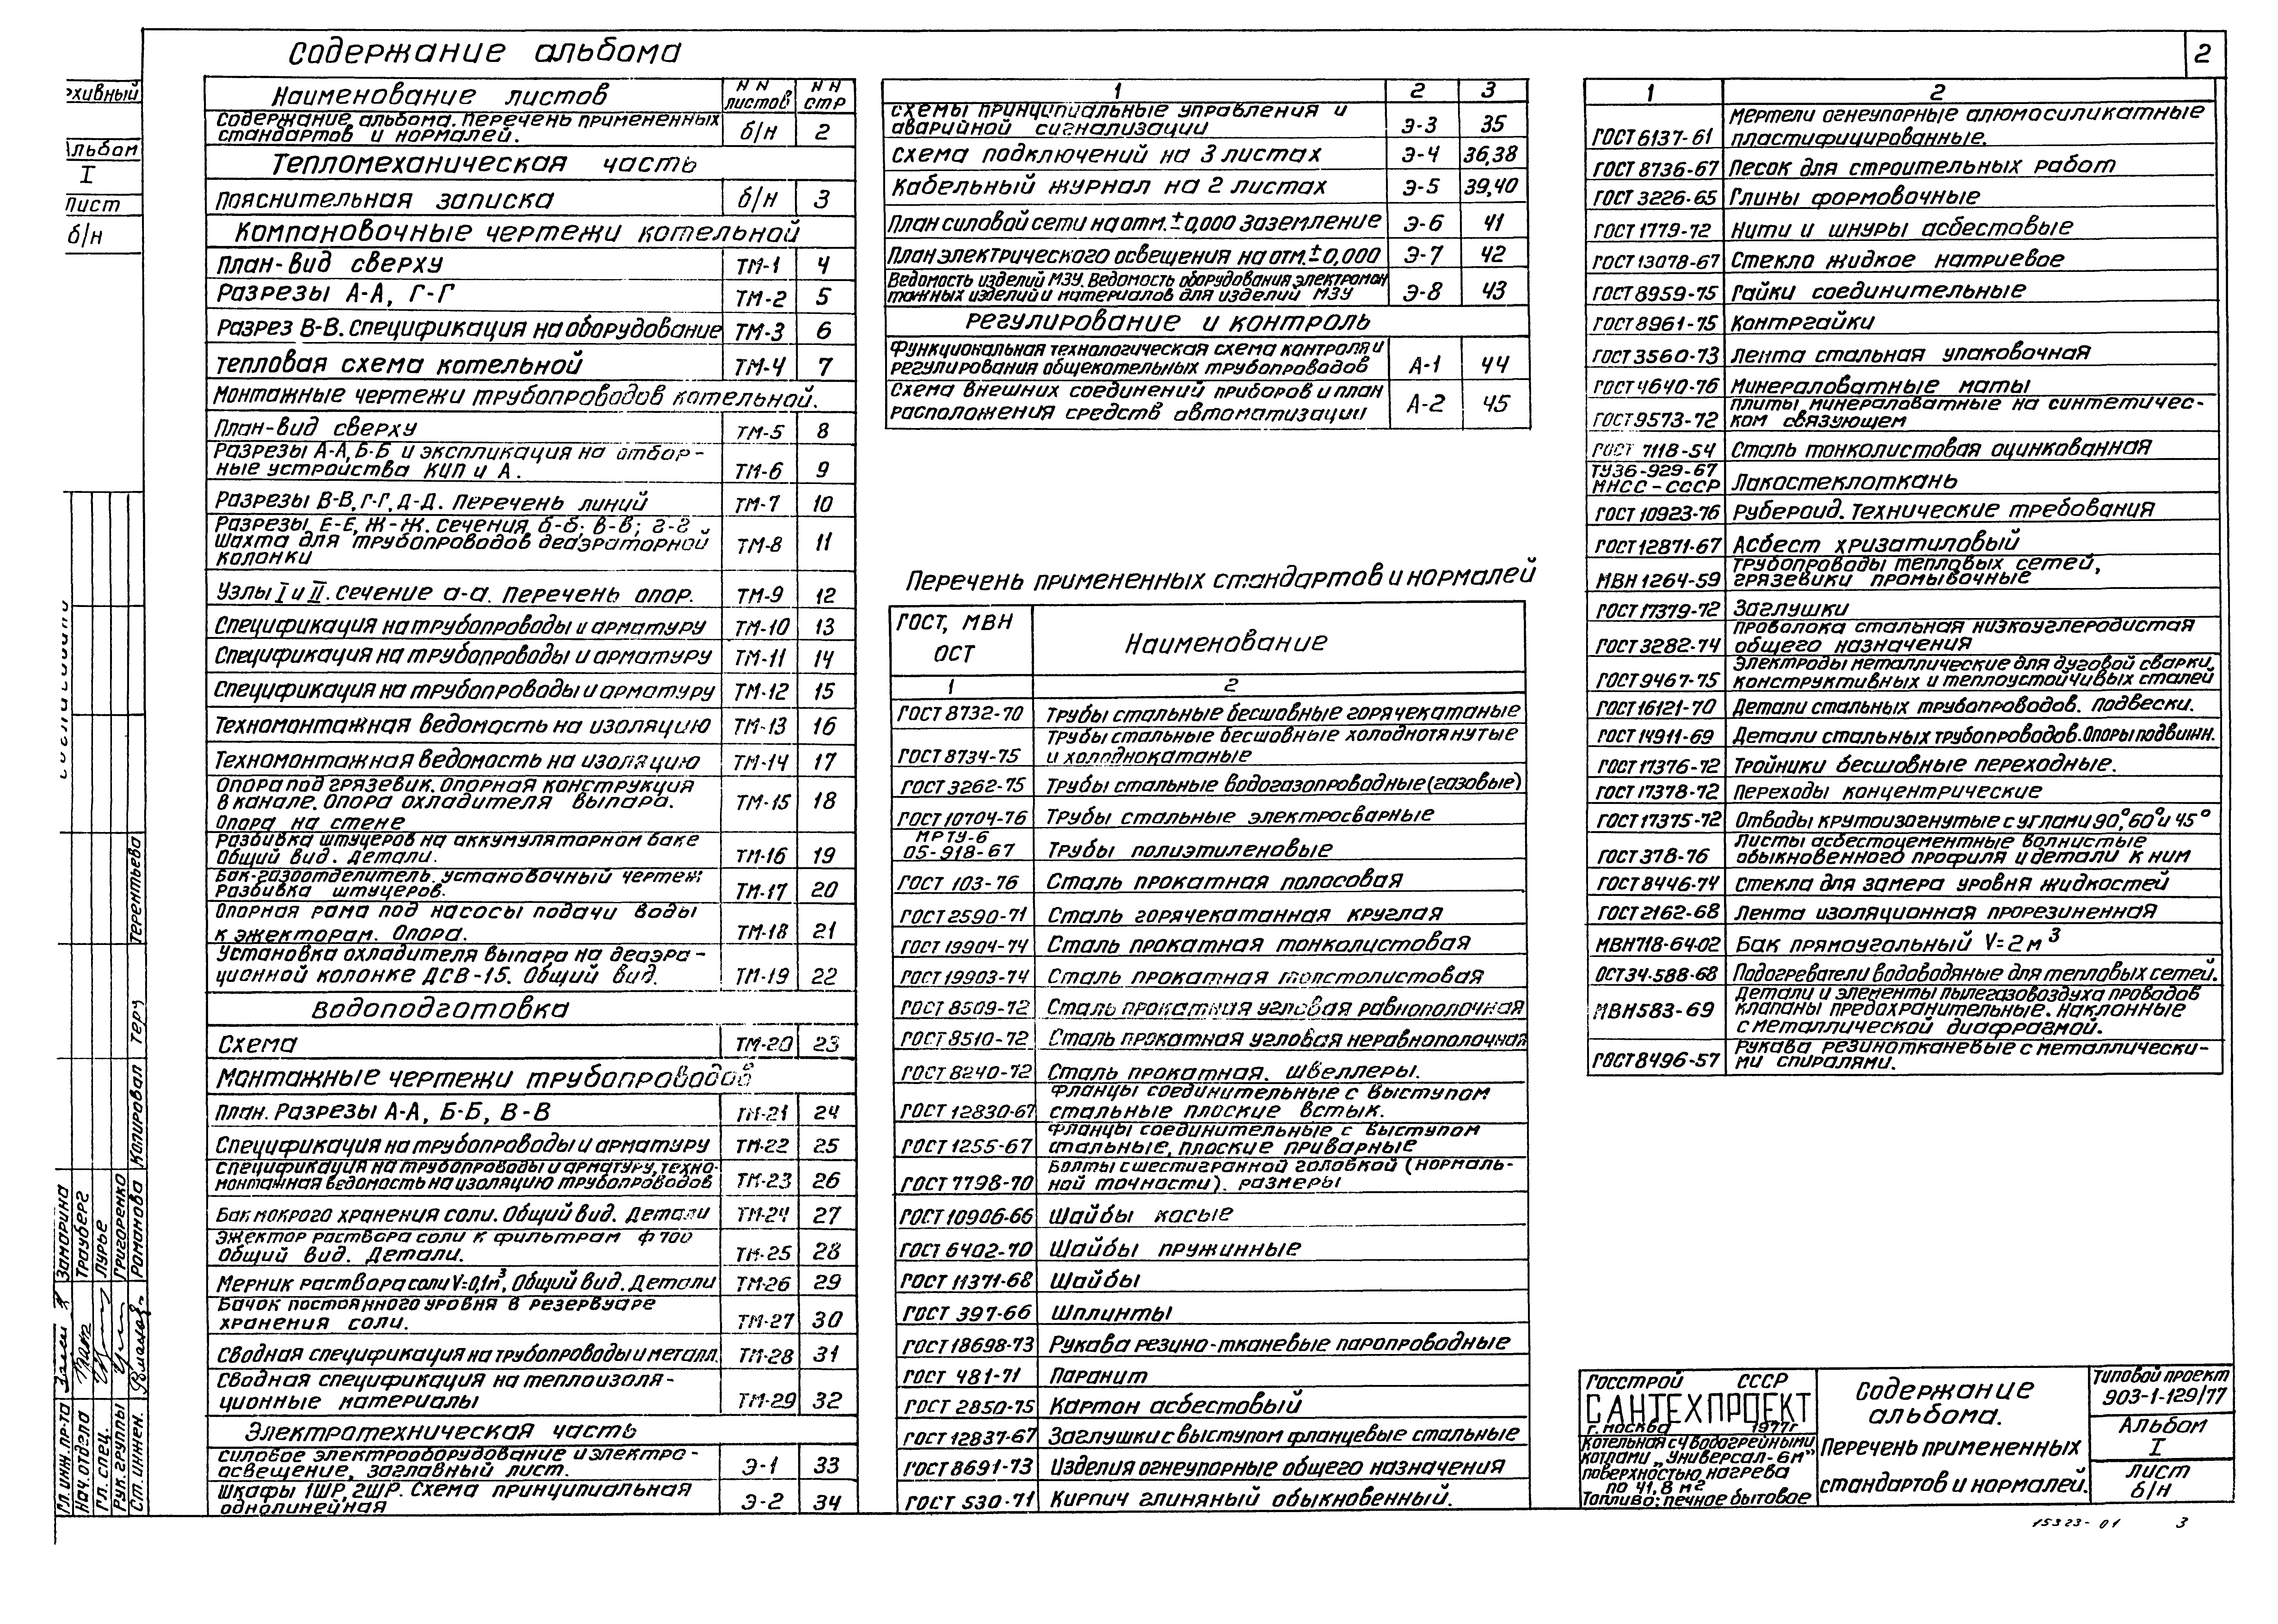 2
Содержание альбома
Наименование листов | NN листов | NN стр
Содержание альбома. Перечень примененных
стандартов и нормалей. | б/н | 2
Тепломеханическая часть
Пояснительная записка | б/н | 3
Компановочные чертежи котельной
План-вид сверху | ТМ-1 | 4
Разрезы А-А, Г-Г | ТМ-2 | 5
Разрез В-В. Спецификация на оборудование | ТМ-3 | 6
Тепловая схема котельной | ТМ-4 | 7
Монтажные чертежи трубопроводов котельной.
План-вид сверху | ТМ-5 | 8
Разрезы А-А, Б-Б и экспликация на отбор-
ные устройства КИП и А. | ТМ-6 | 9
Разрезы В-В, Г-Г, Д-Д. Перечень линий | ТМ-7 | 10
Разрезы, Е-Е, Ж-Ж. сечения б-б; в-в; г-г
Шахта для трубопроводов деаэраторной
колонки | ТМ-8 | 11
Узлы I и II. Сечение а-а. Перечень опор. | ТМ-9 | 12
Спецификация на трубопроводы и арматуру | ТМ-10 | 13
Спецификация на трубопроводы и арматуру | ТМ-11 | 14
Спецификация на трубопроводы и арматуру | ТМ-12 | 15
Техномонтажная ведомость на изоляцию | ТМ-13 | 16
Техномонтажная ведомость на изоляцию | ТМ-14 | 17
Опора под грязевик. Опорная конструкция
в канале. Опора охладителя выпара.
Опора на стене | ТМ-15 | 18
Разбивка штуцеров на аккумуляторном баке
Общий вид. Детали. | ТМ-16 | 19
Бак-газоотделитель. установочный чертеж
Разбивка штуцеров. | ТМ-17 | 20
Опорная рама под насосы подачи воды
к эжекторам. Опора. | ТМ-18 | 21
Установка охладителя выпара на деаэра-
ционной колонке ДСВ-15. Общий вид. | ТМ-19 | 22
Водоподготовка
Схема | ТМ-20 | 23
Монтажные чертежи трубопроводов
План. Разрезы А-А, Б-Б, В-В | ТМ-21 | 24
Спецификация на трубопроводы и арматуру | ТМ-22 | 25
Спецификация на трубопроводы и арматуру, техно-
монтажная ведомость на изоляцию трубопроводов | ТМ-23 | 26
Бак мокрого хранения соли. Общий вид. Детали | ТМ-24 | 27
Эжектор раствора соли к фильтрам ф 700
Общий вид. Детали. | ТМ-25 | 28
Мерник раствора соли V=0,1м³. Общий вид. Детали | ТМ-26 | 29
Бачок постоянного уровня в резервуаре
хранения соли. | ТМ-27 | 30
Сводная спецификация на трубопроводы и металл. | ТМ-28 | 31
Сводная спецификация на теплоизоля-
ционные материалы | ТМ-29 | 32
Электротехническая часть
Силовое электрооборудование и электро-
освещение, заглавный лист. | Э-1 | 33
Шкафы 1ШР, 2ШР. Схема принципиальная
однолинейная | Э-2 | 34
1 | 2 | 3
Схемы принципиальные управления и
аварийной сигнализации | Э-3 | 35
Схема подключений на 3 листах | Э-4 | 36,38
Кабельный журнал на 2 листах | Э-5 | 39,40
План силовой сети на отм. ±0,000 Заземление | Э-6 | 41
План электрического освещения на отм. ±0,000 | Э-7 | 42
Ведомость изделий МЗУ. Ведомость оборудования электромон
тажных изделий и материалов для изделий МЗУ | Э-8 | 43
Регулирование и контроль
Функциональная технологическая схема контроля и
регулирования общекотельных трубопроводов | А-1 | 44
Схема внешних соединений приборов и план
расположения средств автоматизации | А-2 | 45
Перечень примененных стандартов и нормалей
ГОСТ, МВН ОСТ | Наименование
1 | 2
ГОСТ 8732-70 | Трубы стальные бесшовные горячекатаные
ГОСТ 8734-75 | Трубы стальные бесшовные холоднотянутые
и холоднокатаные
ГОСТ 3262-75 | Трубы стальные водогазопроводные (газовые)
ГОСТ 10704-76 | Трубы стальные электросварные
МРТУ-6
05-918-67 | Трубы полиэтиленовые
ГОСТ 103-76 | Сталь прокатная полосовая
ГОСТ 2590-71 | Сталь горячекатанная круглая
ГОСТ 19904-74 | Сталь прокатная тонколистовая
ГОСТ 19903-74 | Сталь прокатная толстолистовая
ГОСТ 8509-72 | Сталь прокатная угловая равнополочная
ГОСТ 8510-72 | Сталь прокатная угловая неравнополочная
ГОСТ 8240-72 | Сталь прокатная. Швеллеры.
ГОСТ 12830-67 | Фланцы соединительные с выступом
стальные плоские встык.
ГОСТ 1255-67 | Фланцы соединительные с выступом
стальные, плоские приварные
ГОСТ 7798-70 | Болты с шестигранной головкой (нормаль-
ной точности). размеры
ГОСТ 10906-66 | Шайбы косые
ГОСТ 6402-70 | Шайбы пружинные
ГОСТ 11371-68 | Шайбы
ГОСТ 397-66 | Шплинты
ГОСТ 18698-73 | Рукава резино-тканевые паропроводные
ГОСТ 481-71 | Паранит
ГОСТ 2850-75 | Картон асбестовый
ГОСТ 12837-67 | Заглушки с выступом фланцевые стальные
ГОСТ 8691-73 | Изделия огнеупорные общего назначения
ГОСТ 530-71 | Кирпич глиняный обыкновенный.
1 | 2
ГОСТ 6137-61 | Мертели огнеупорные алюмосиликатные
пластифицированные.
ГОСТ 8736-67 | Песок для строительных работ
ГОСТ 3226-65 | Глины формовочные
ГОСТ 1779-72 | Нити и шнуры асбестовые
ГОСТ 13078-67 | Стекло жидкое натриевое
ГОСТ 8959-75 | Гайки соединительные
ГОСТ 8961-75 | Контргайки
ГОСТ 3560-73 | Лента стальная упаковочная
ГОСТ 4640-76 | Минераловатные маты
ГОСТ 9573-72 | Плиты минераловатные на синтетичес-
ком связующем
ГОСТ 7118-54 | Сталь тонколистовая оцинкованная
ТУ36-929-67
МНСС-СССР | Лакостеклоткань
ГОСТ 10923-76 | Рубероид. Технические требования
ГОСТ 12871-67 | Асбест хризатиловый
МВН 1264-59 | Трубопроводы тепловых сетей,
грязевики промывочные
ГОСТ 17379-72 | Заглушки
ГОСТ 3282-74 | Проволока стальная низкоуглеродистая
общего назначения
ГОСТ 9467-75 | Электроды металлические для дуговой сварки
конструктивных и теплоустойчивых сталей
ГОСТ 16121-70 | Детали стальных трубопроводов. Подвески.
ГОСТ 14911-69 | Детали стальных трубопроводов. Опоры подвижн.
ГОСТ 17376-72 | Тройники бесшовные переходные.
ГОСТ 17378-72 | Переходы концентрические
ГОСТ 17375-72 | Отводы крутоизогнутые с углами 90°, 60° и 45°
ГОСТ 378-76 | Листы асбестоцементные волнистые
обыкновенного профиля и детали к ним
ГОСТ 8446-74 | Стекла для замера уровня жидкостей
ГОСТ 2162-68 | Лента изоляционная прорезиненная
МВН 718-64-02 | Бак прямоугольный V=2м³
ОСТ 34.588-68 | Подогреватели водоводяные для тепловых сетей.
МВН 583-69 | Детали и элементы пылегазовоздуха проводов
клапаны предохранительные. Наклонные
с металлической диафрагмой.
ГОСТ 8496-57 | Рукава резинотканевые с металлически-
ми спиралями.
Госстрой СССР
САНТЕХПРОЕКТ
г. Москва 1977г
Котельная с 4 водогрейными
котлами „Универсал-6м"
поверхностью нагрева
по 41,8 м²
Топливо: печное бытовое
Содержание
альбома.
Перечень примененных
стандартов и нормалей.
Типовой проект
903-1-129/77
Альбом
I
Лист
б/н
15323-01 3
рхивный
Альбом
I
Лист
б/н
Гл. инж. пр-та Заморина
Нач. отдела Трауберг
Гл. спец. Лурье
Рук. группы Григоренко
Ст. инжен. Романова
Копировал Терентьева